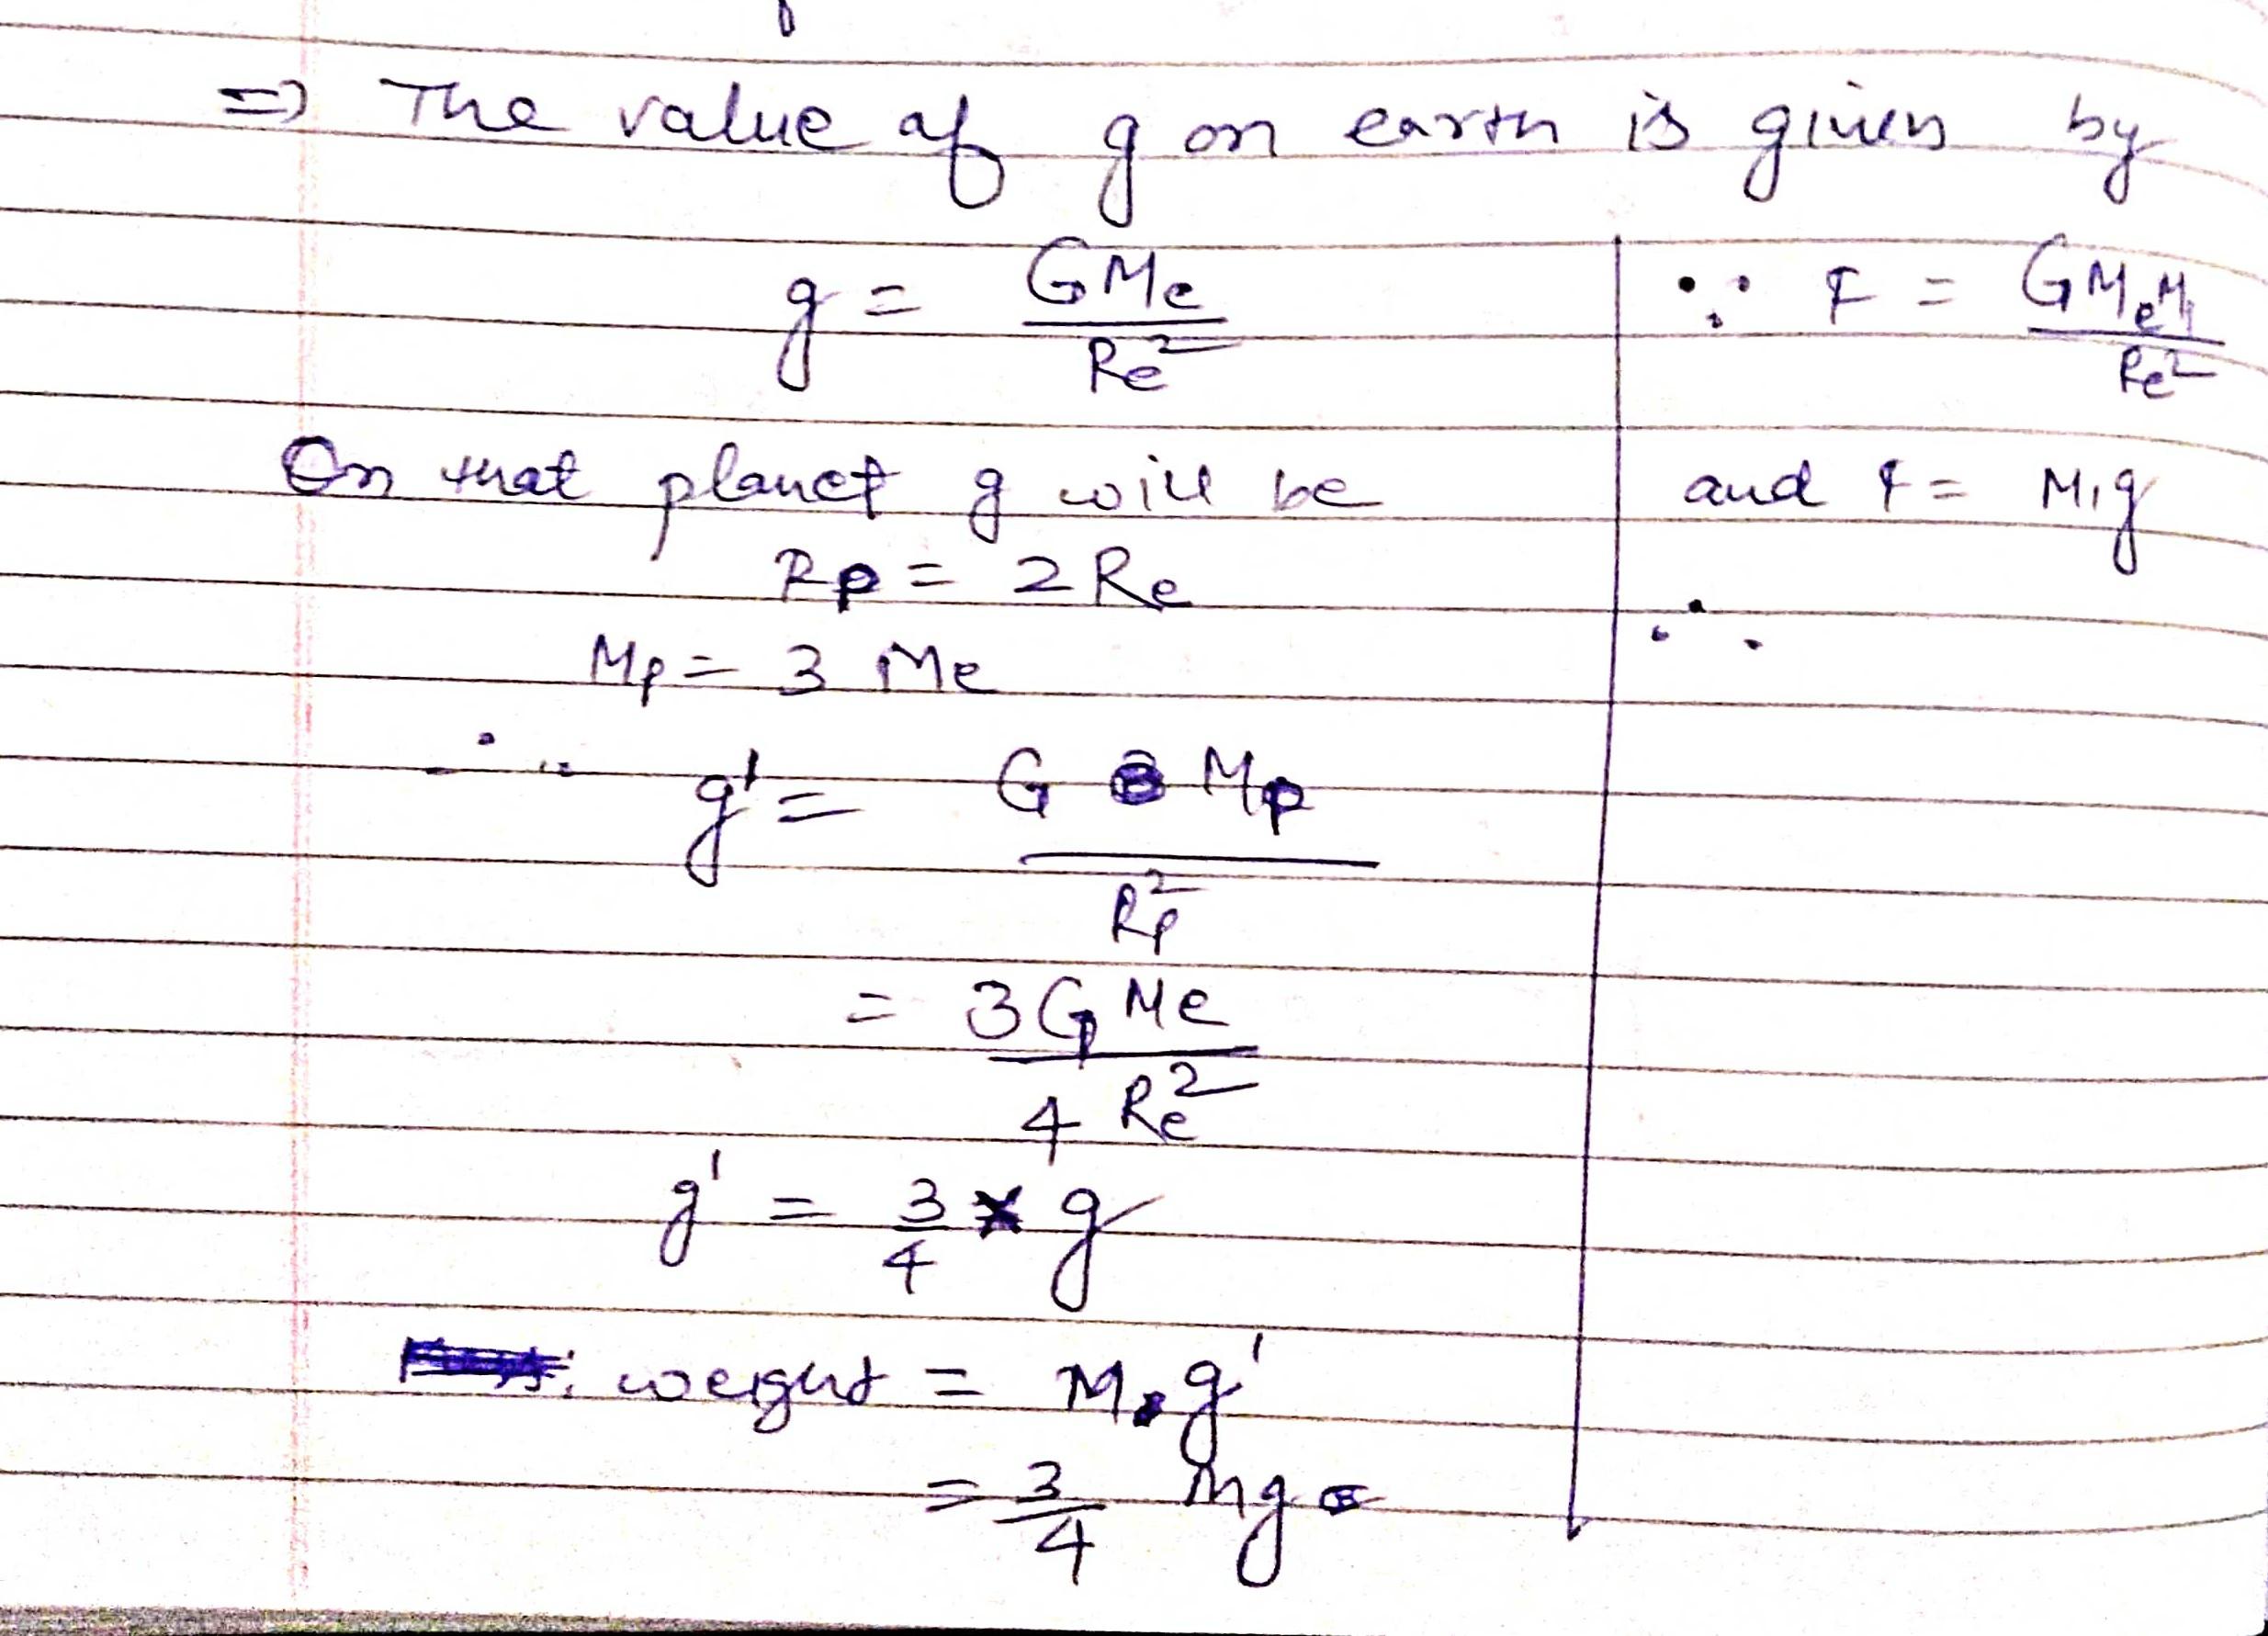 ⇒ The value of g on earth is given by
g = GMe / Re²
∵ F = GMeM₁ / Re²
On that planet g will be
and F = M₁g
Rp = 2Re
∴
Mp = 3 Me
∴ g' = G Mp / Rp²
= 3GMe / 4 Re²
g' = 3/4 × g
weight = M g'
= 3/4 mg